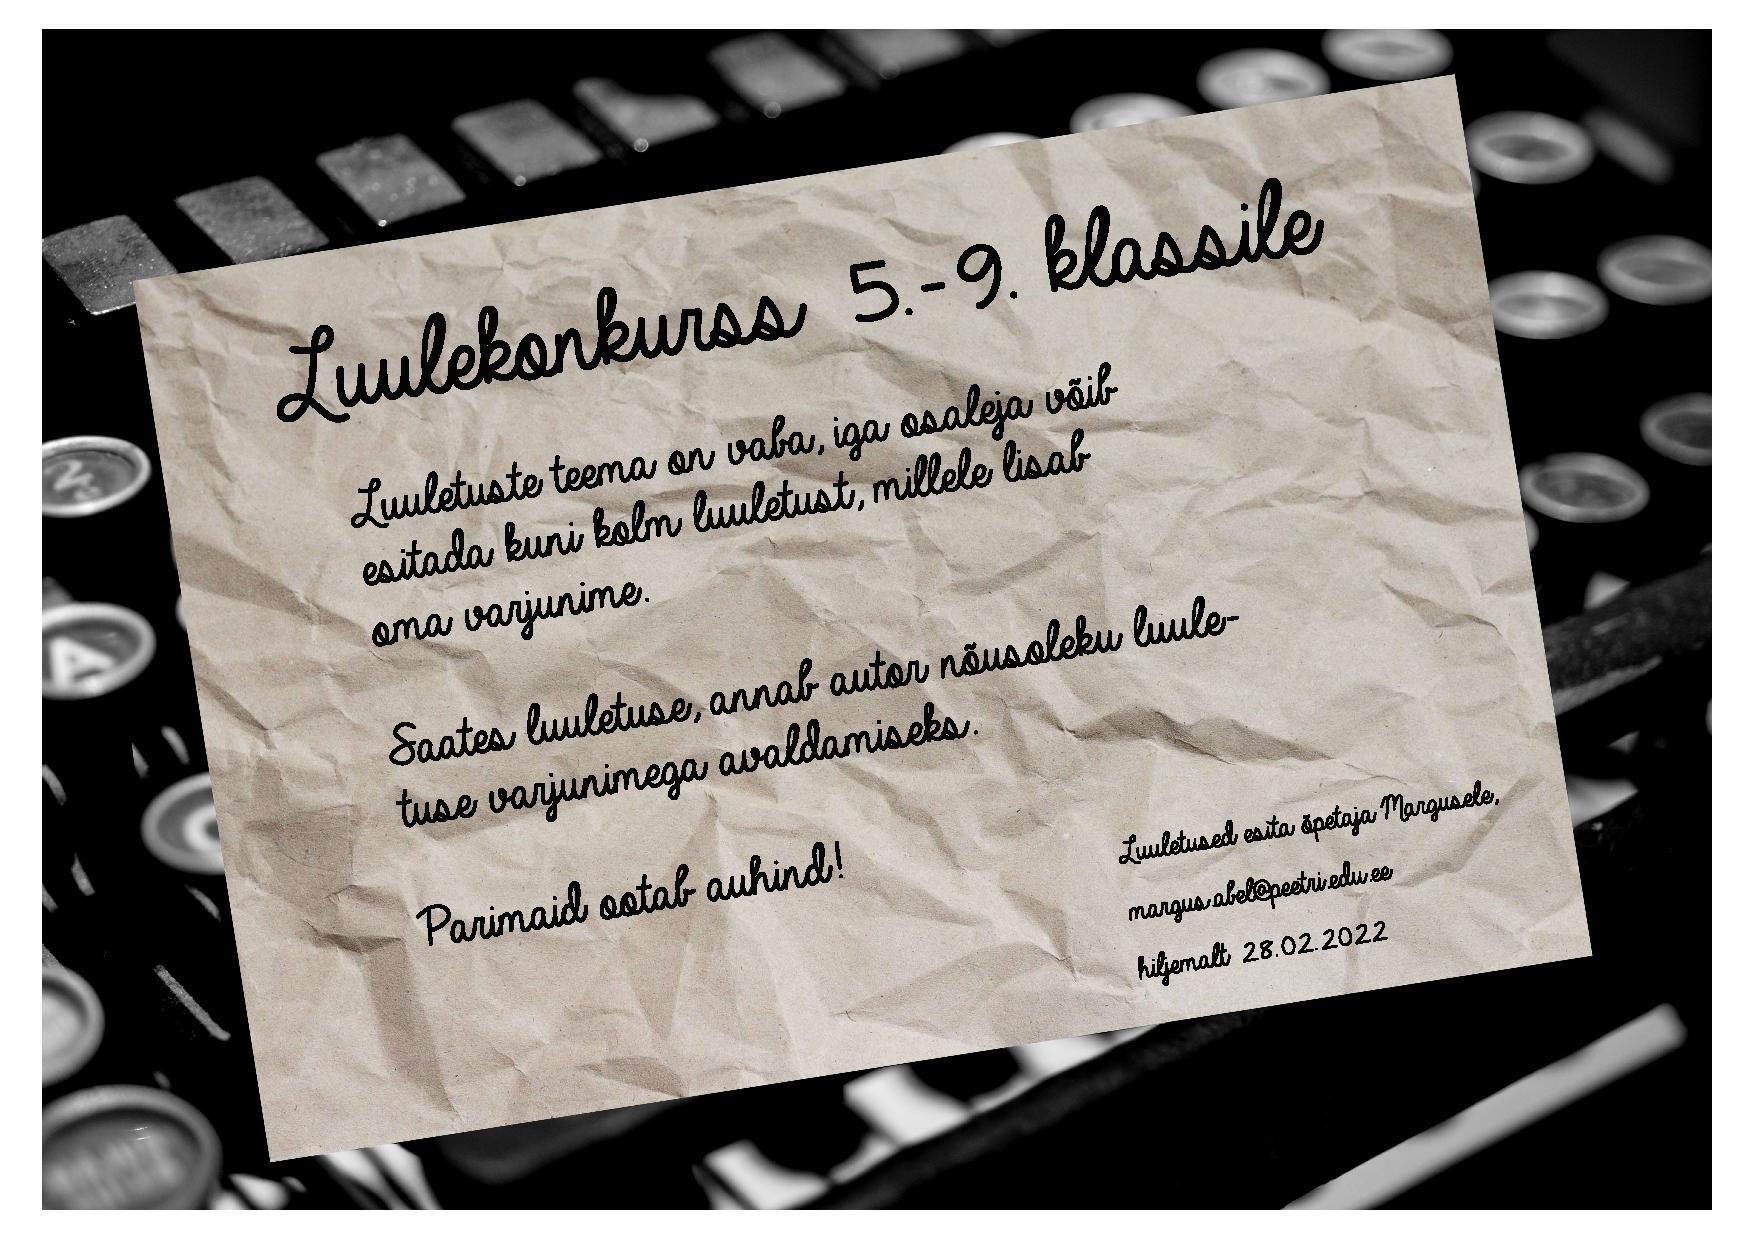 Luulekonkurss 5.-9. klassile
Luuletuste teema on vaba, iga osaleja võib
esitada kuni kolm luuletust, millele lisab
oma varjunime.
Saates luuletuse, annab autor nõusoleku luule-
tuse varjunimega avaldamiseks.
Parimaid ootab auhind!
Luuletused esita õpetaja Margusele,
margus.abel@peetri.edu.ee
hiljemalt 28.02.2022
A